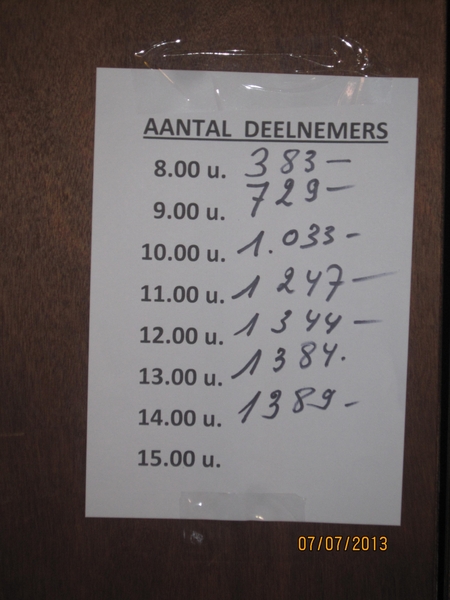 AANTAL DEELNEMERS
8.00 u. 383-
9.00 u. 729-
10.00 u. 1.033-
11.00 u. 1247-
12.00 u. 1344-
13.00 u. 1384.
14.00 u. 1389-
15.00 u.
07/07/2013